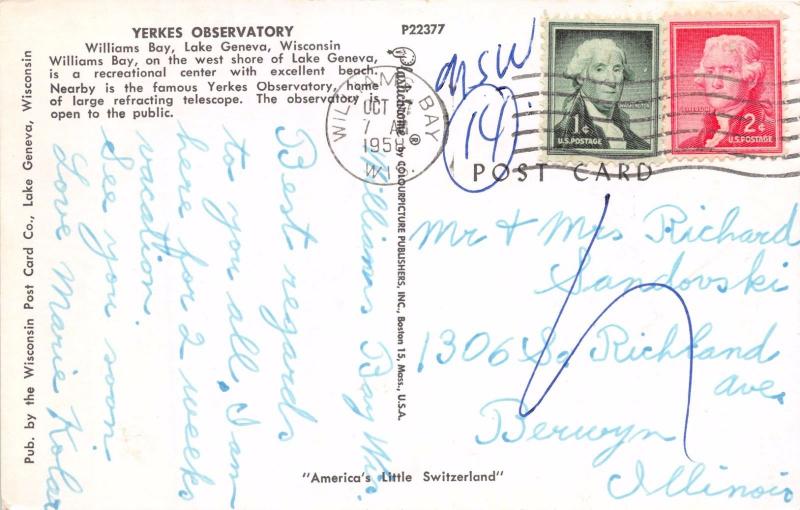 YERKES OBSERVATORY
Williams Bay, Lake Geneva, Wisconsin
Williams Bay, on the west shore of Lake Geneva,
is a recreational center with excellent beach.
Nearby is the famous Yerkes Observatory, home
of large refracting telescope. The observatory is
open to the public.
P22377
Pub. by the Wisconsin Post Card Co., Lake Geneva, Wisconsin
Plastichrome® by COLOURPICTURE PUBLISHERS, INC., Boston 15, Mass., U.S.A.
WILLIAMS BAY
OCT
7 AM
WIS.
14
WASHINGTON
1¢
U.S. POSTAGE
JEFFERSON
2¢
U.S. POSTAGE
POST CARD
Williams Bay Wis.
Best regards
to you all, I am
here for 2 weeks
vacation
See you soon
Love Marie Kolar
Mr + Mrs Richard
Sandovski
1306 So Richland
ave
Berwyn
Illinois
"America's Little Switzerland"